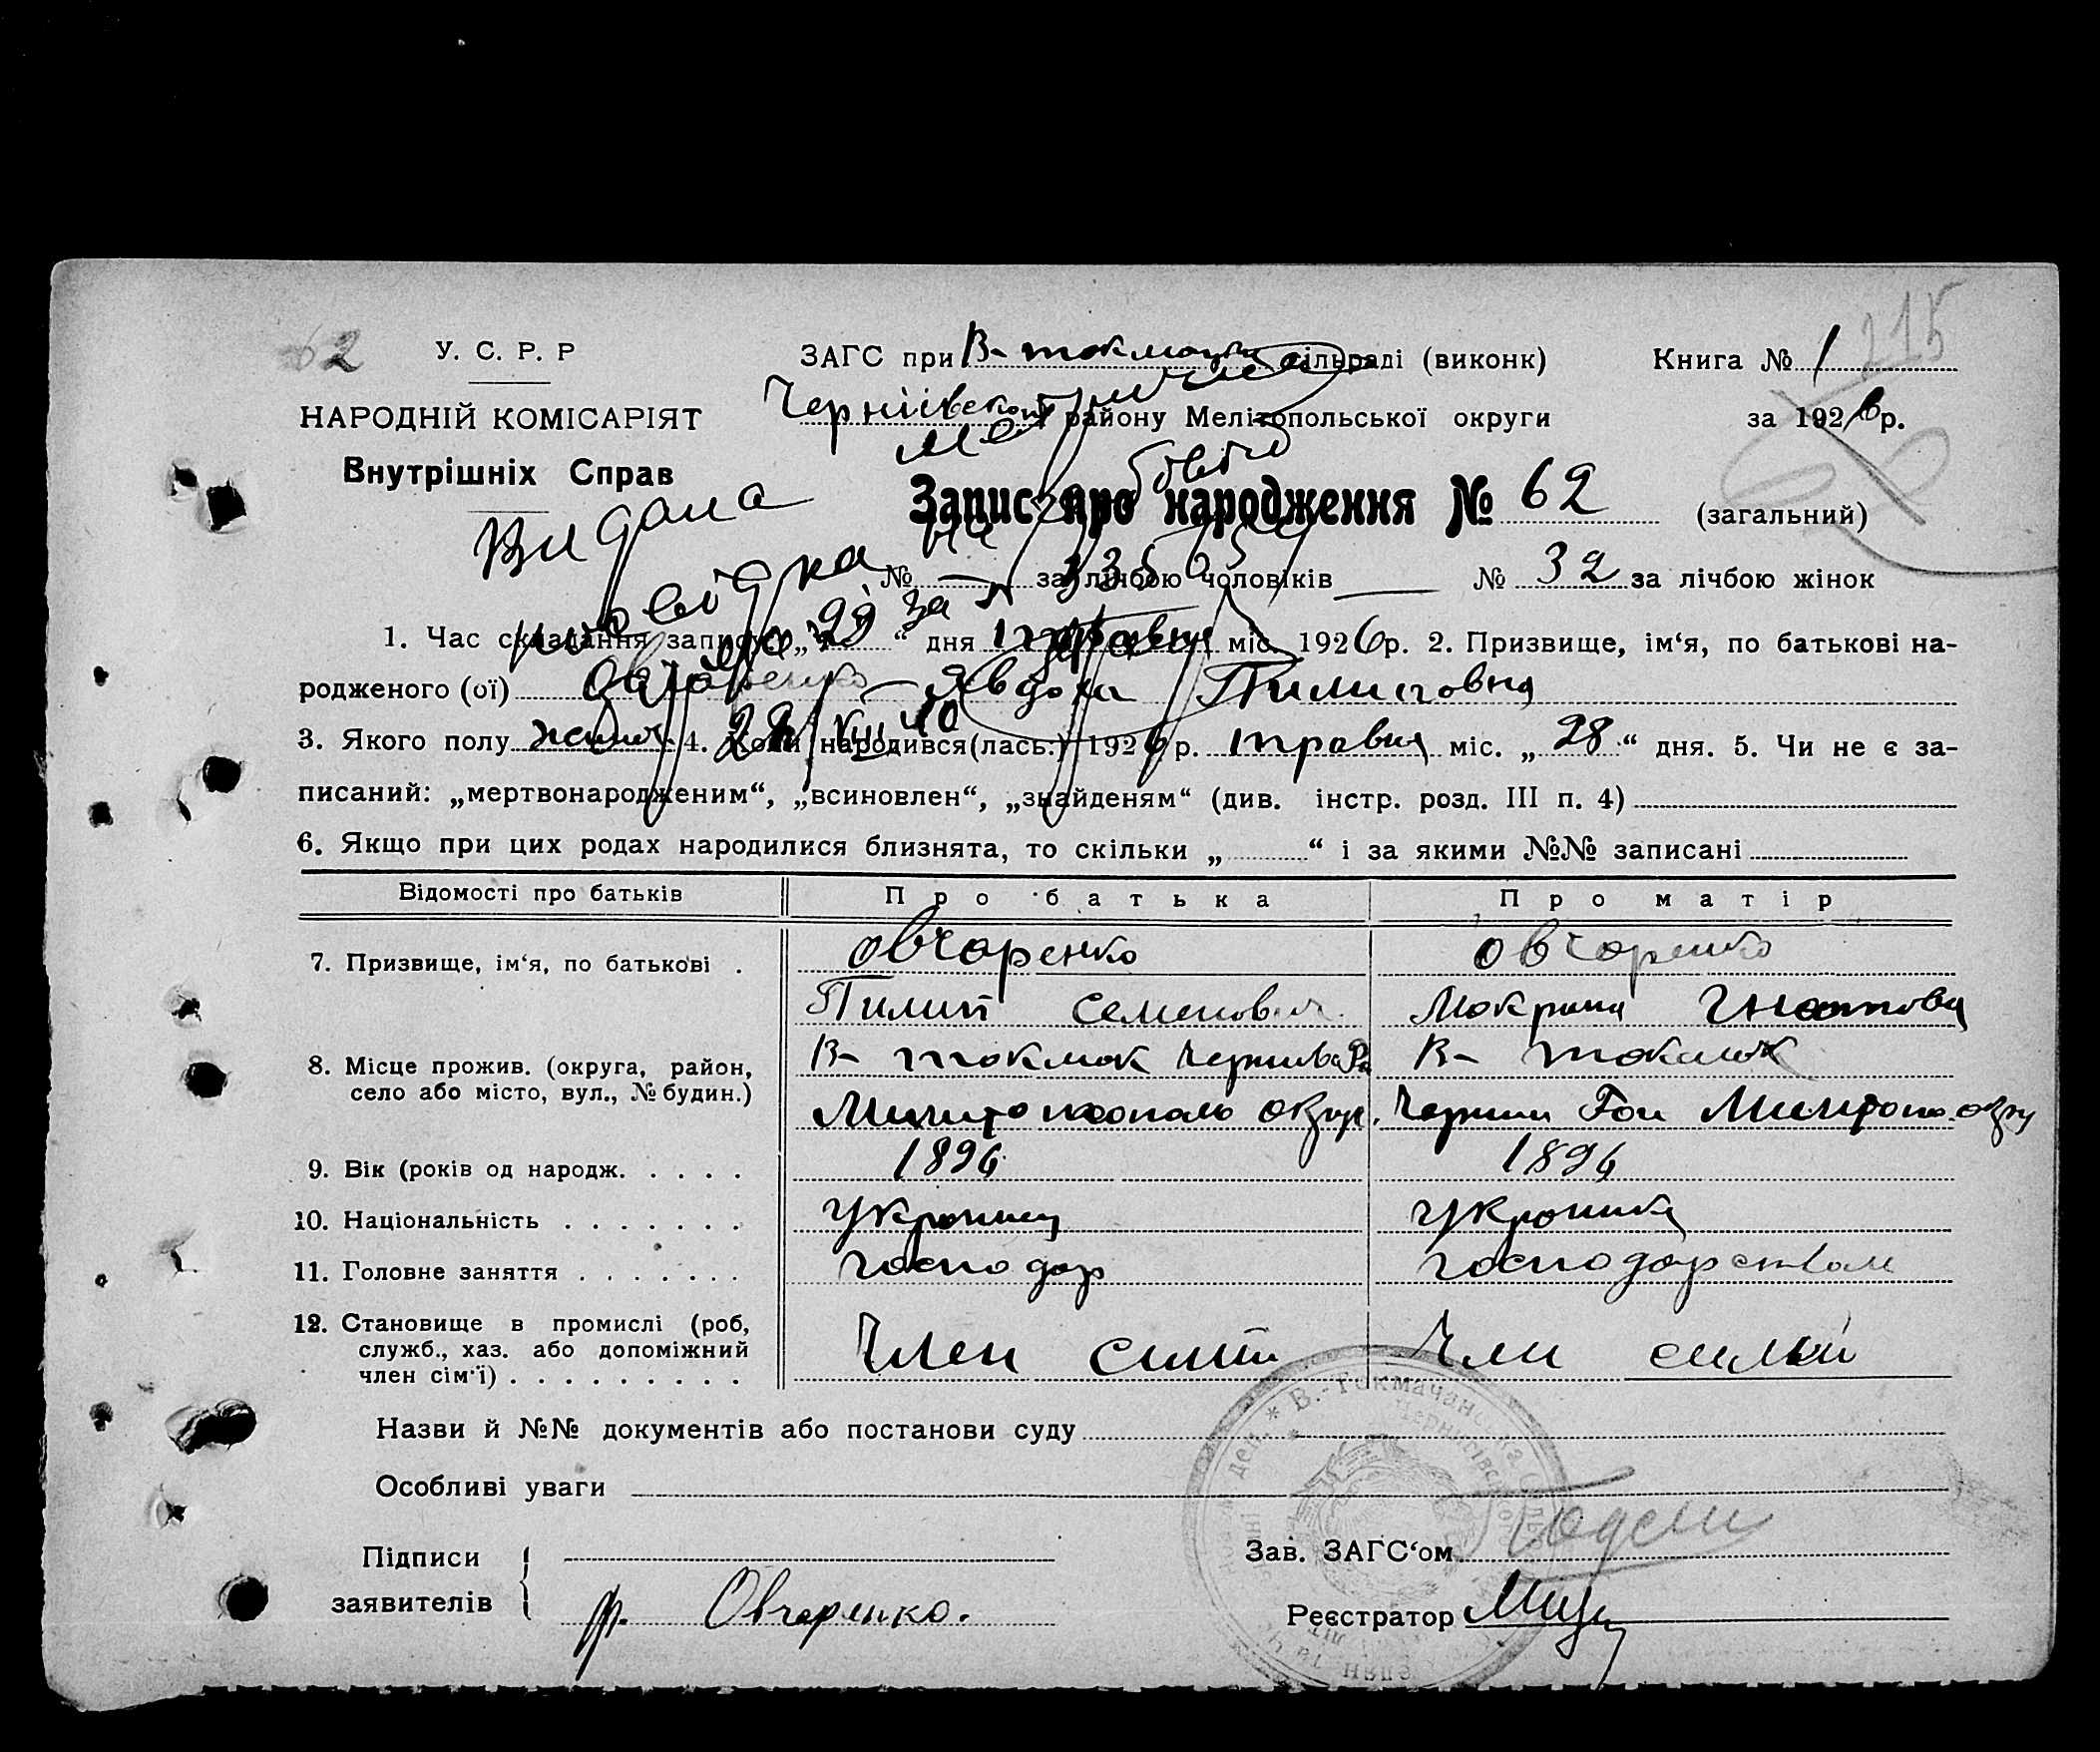 62
215
У. С. Р. Р
ЗАГС при В-токмацькі сільраді (виконк)
Книга № 1
НАРОДНІЙ КОМІСАРІЯТ
Чернігівському району Мелітопольської округи
за 1926 р.
Внутрішніх Справ
Запис про народження № 62 (загальний)
Видана
№ — за лічбою чоловіків
№ 32 за лічбою жінок
1. Час складання запису „29“ дня травня міс. 1926 р. 2. Призвище, ім‘я, по батькові на-
родженого (ої) Овчаренко — Явдоха Пилиповна
3. Якого полу жіноч 4. Коли народився(лась.) 1926 р. травня міс. „28“ дня. 5. Чи не є за-
писаний: „мертвонародженим“, „всиновлен“, „знайденям“ (див. інстр. розд. III п. 4)
6. Якщо при цих родах народилися близнята, то скільки „ “ і за якими №№ записані
Відомості про батьків
Про батька
Про матір
7. Призвище, ім‘я, по батькові .
Овчаренко
Овчаренко
Пилип Семенович
Мокрина Гнатовна
8. Місце прожив. (округа, район,
село або місто, вул., № будин.)
В- токмак
В- токмак
9. Вік (років од народж. . . . .
1896
1896
10. Національність . . . . . . .
Українец
Українка
11. Головне заняття . . . . . . .
господар
господарством
12. Становище в промислі (роб,
служб., хаз. або допоміжний
член сім‘ї) . . . . . . . . .
Член сим'ї
Член сим'ї
Назви й №№ документів або постанови суду
Особливі уваги
Підписи
заявителів
Овчаренко.
Зав. ЗАГС‘ом
Реєстратор